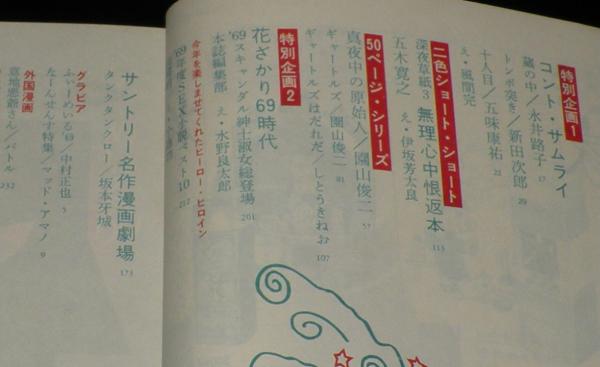 特別企画1
コント・サムライ
蔵の中／永井路子 17
トンボ突き／新田次郎 29
十人目／五味康祐 22
え・風間完
二色ショート・ショート
深夜草紙3 無理心中恨返本 113
五木寛之 え・伊坂芳太良
50ページ・シリーズ
真夜中の原始人／園山俊二 57
ギャートルズ／園山俊二 81
ギャートルズはだれだ／しとうきねお 107
特別企画2
花ざかり69時代
'69スキャンダル紳士淑女総登場 201
本誌編集部 え・水野良太郎
今年を楽しませてくれたヒーロー・ヒロイン
'69年度SEX小説ベスト10 212
サントリー名作漫画劇場 173
タンクタンクロー／坂本牙城
グラビア
ふぃーめいる69／中村正也 5
なーんせんす特集／マッド・アマノ 9
外国漫画
意地悪爺さん／バトル 232